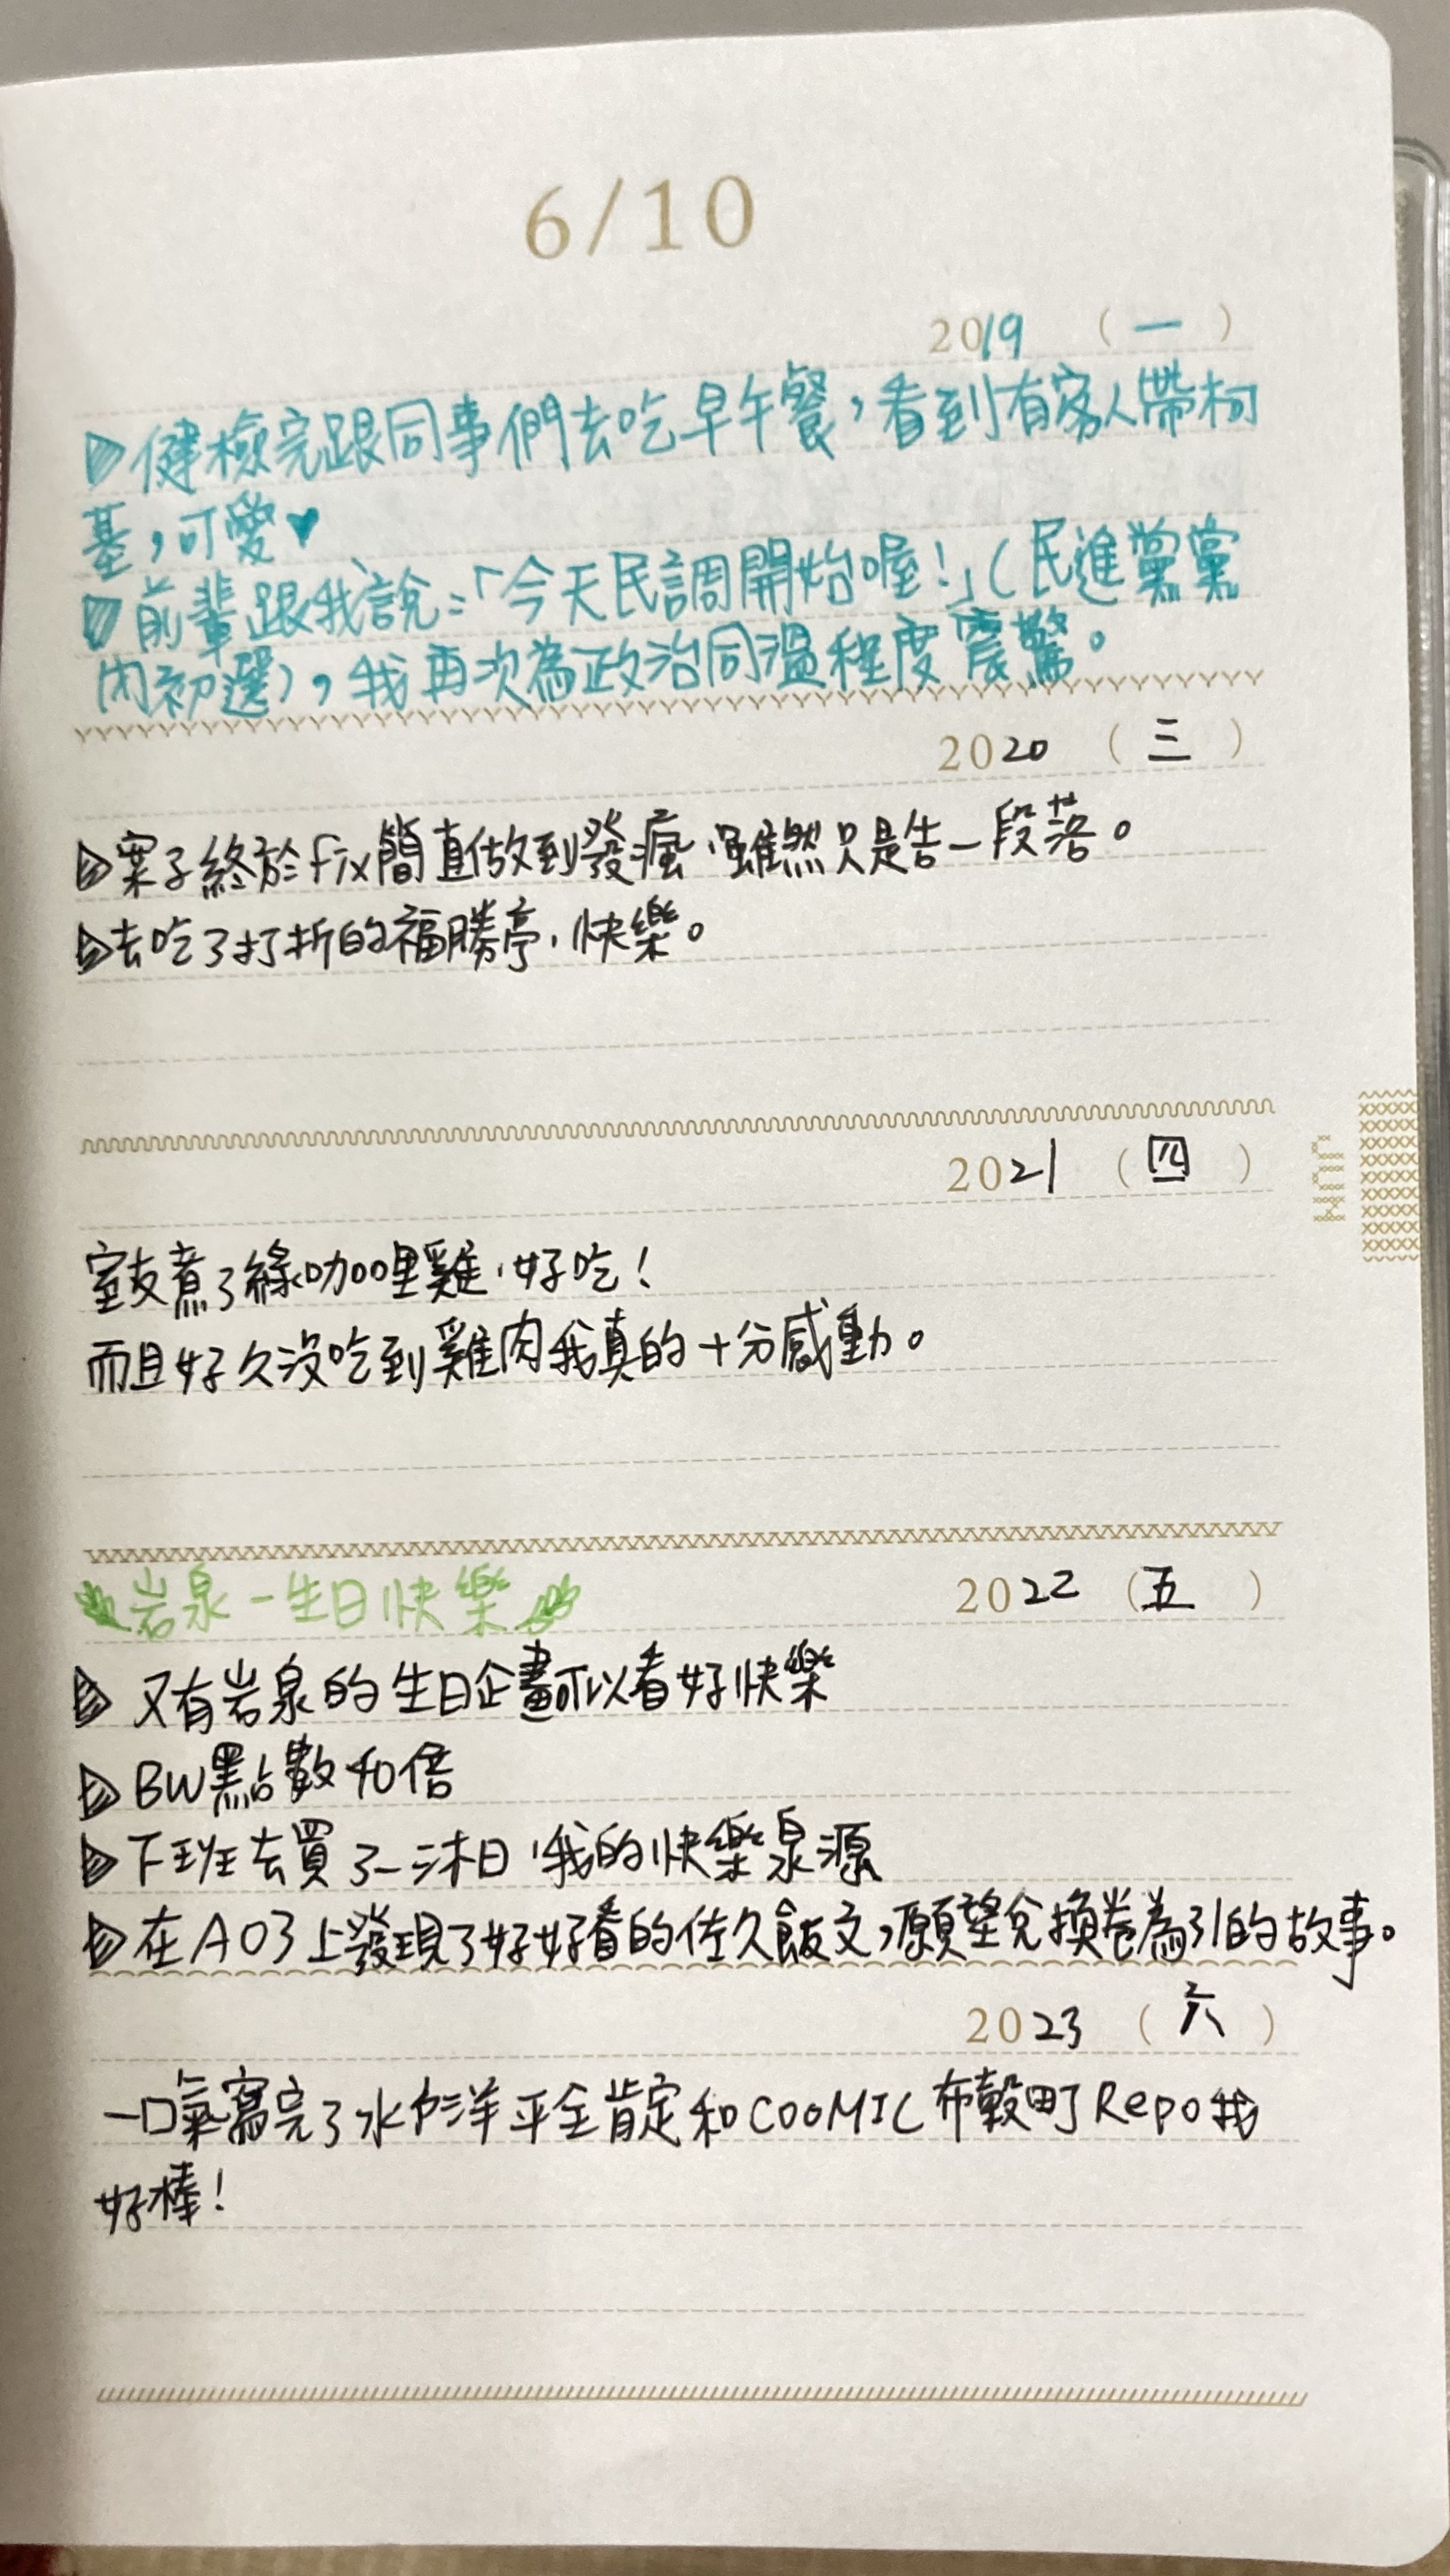 6/10
2019 (一)
▷健檢完跟同事們去吃早午餐，看到有客人帶柯
基，可愛♥
▷前輩跟我說：「今天民調開始喔！」(民進黨黨
內初選)，我再次為政治同溫程度震驚。
2020 (三)
▷案子終於fix簡直做到發瘋，雖然只是告一段落。
▷去吃了打折的福勝亭，快樂。
2021 (四)
JUN
室友煮了綠咖哩雞，好吃！
而且好久沒吃到雞肉我真的十分感動。
岩泉一生日快樂
2022 (五)
▷又有岩泉的生日企畫可以看好快樂
▷BW點數40倍
▷下班去買了一沐日，我的快樂泉源
▷在AO3上發現了好好看的佐久飯文，願望兌換卷為引的故事。
2023 (六)
一口氣寫完了水中洋平全肯定和COOMIC布穀町Repo我
好棒！